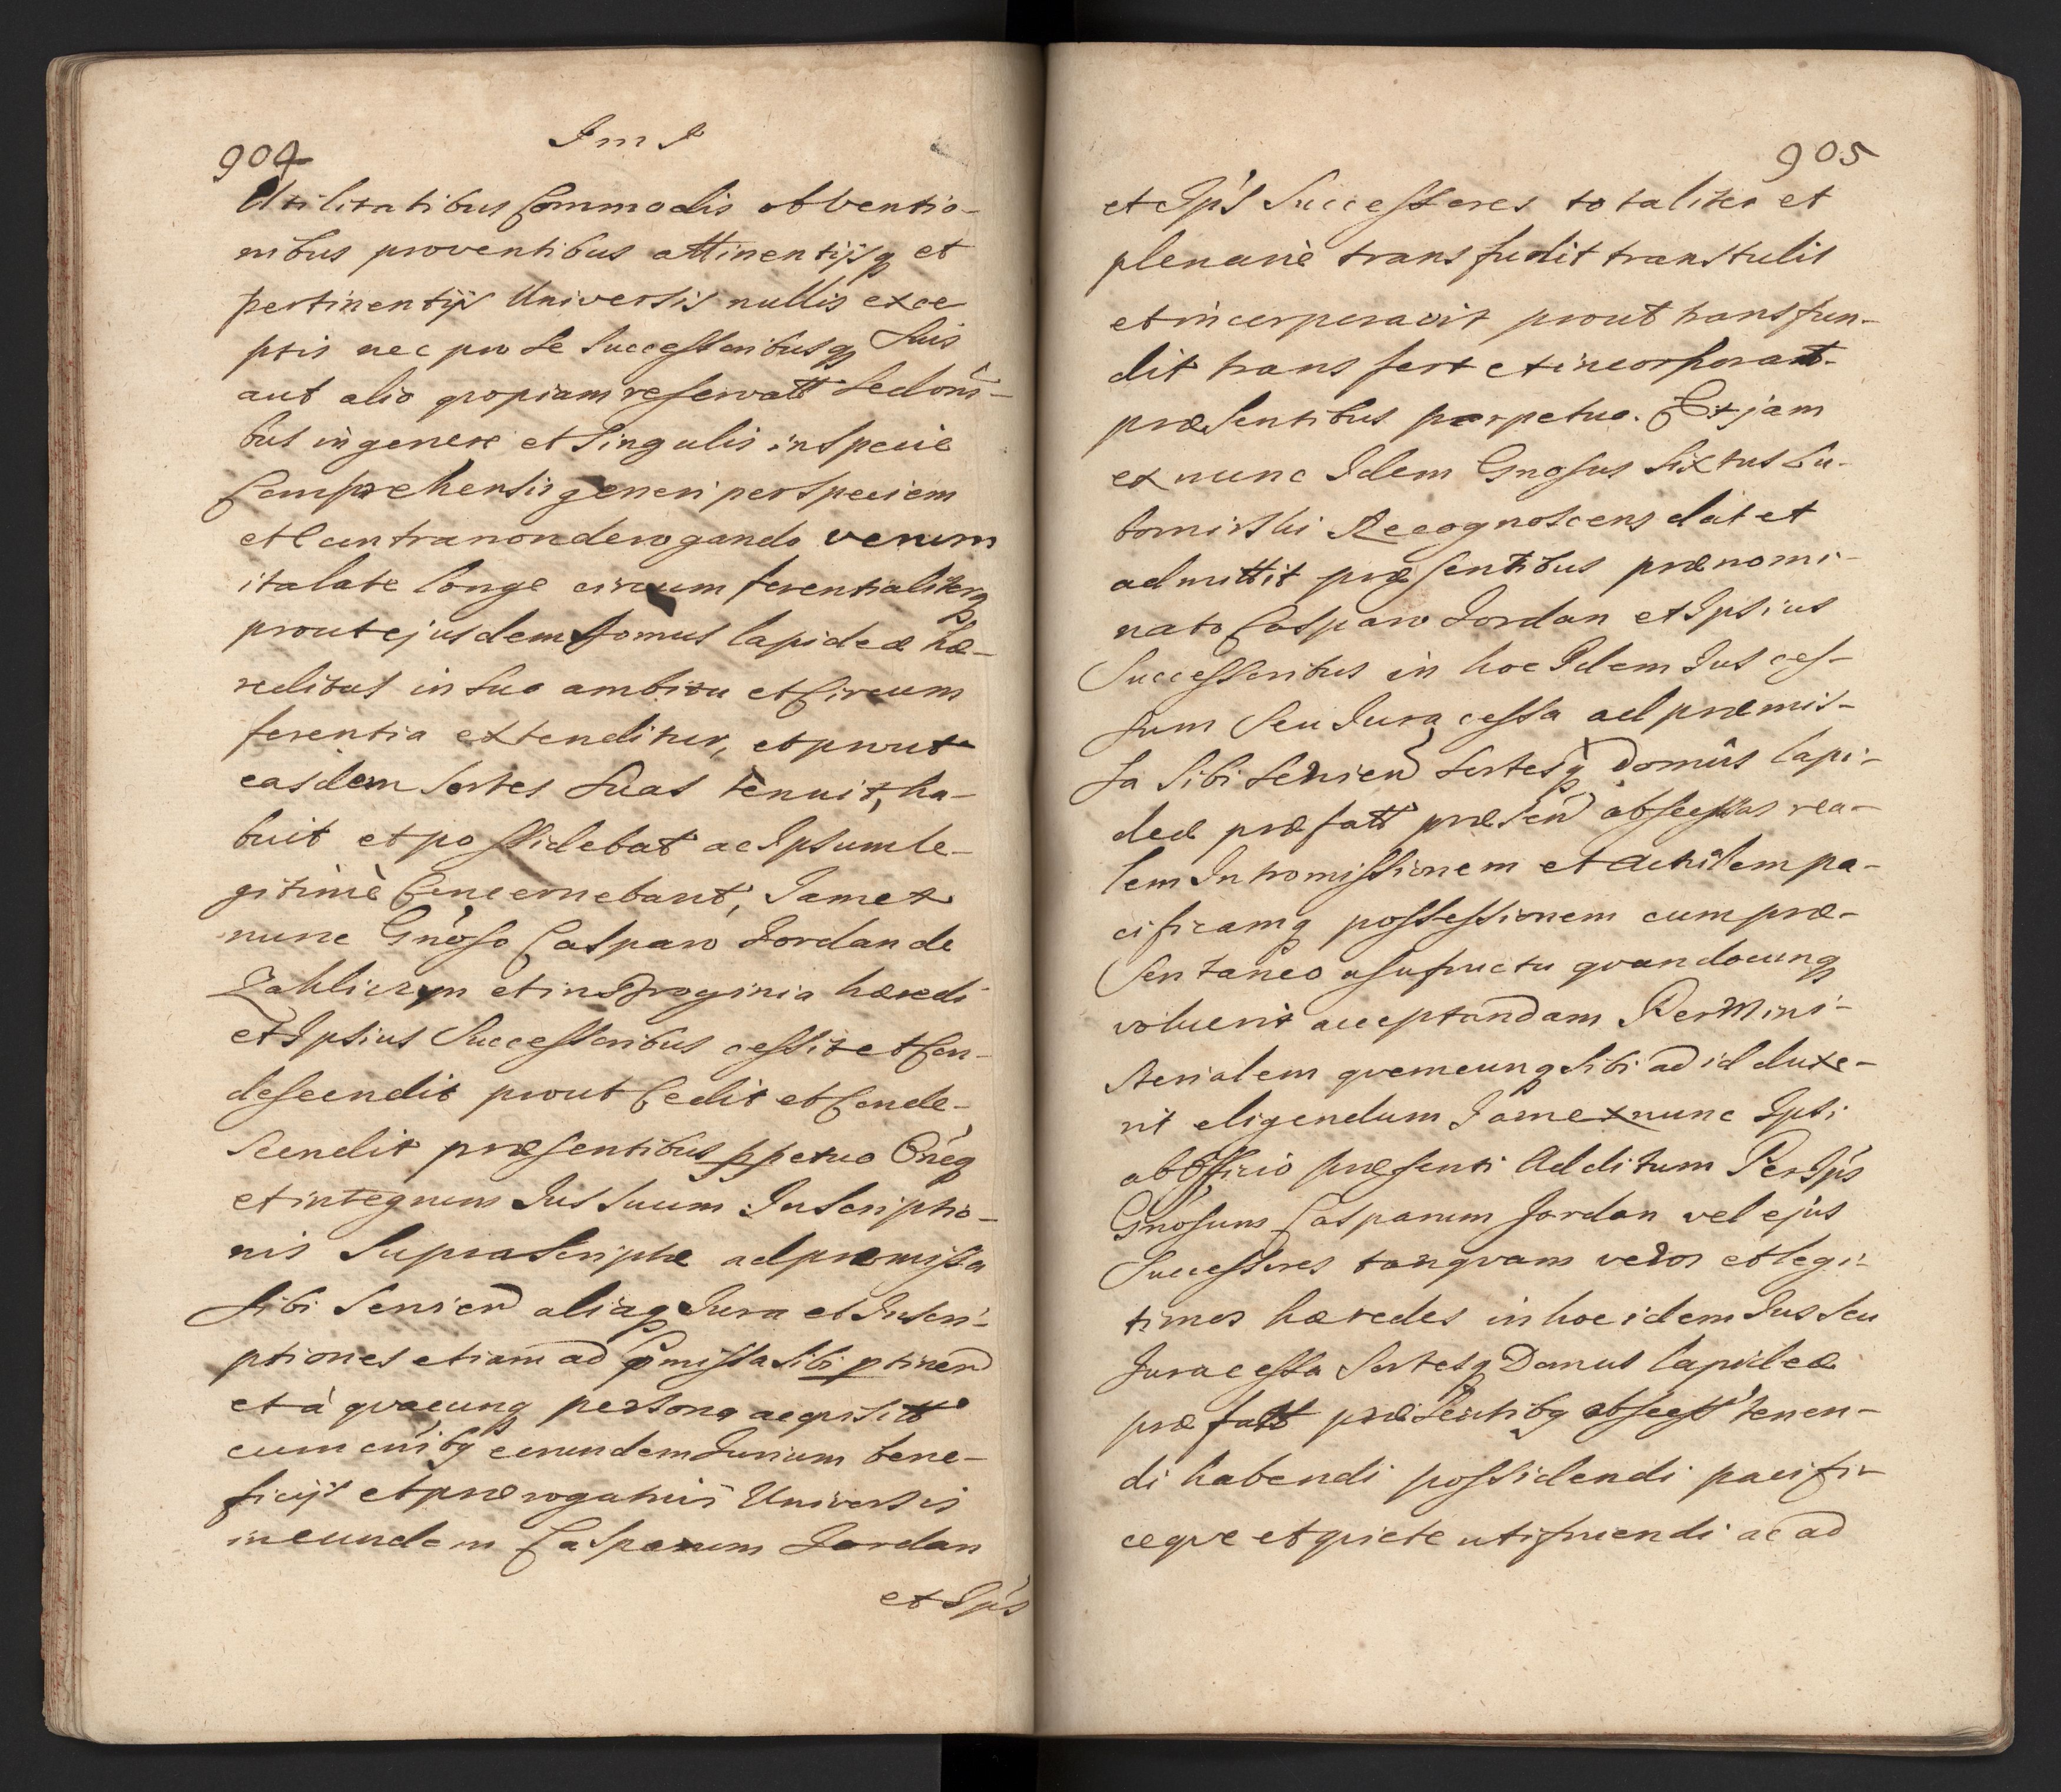 904
Im I
Utilitatibus Commodis obventio-
nibus proventibus attinentijsq et
pertinentijs Universis nullis exce
ptis nec pro se Successoribusq Suis
aut alio qvopiam reservatt sed om̄-
bus in genere et Singulis in Specie
Comprehensis generi per Speciem
et Contra non derogando verum
ita late longe circumferentialiterq
prout ejusdem Domus lapideæ hæ-
reditas in Suo ambitu et Circum
ferentia extenditur, et prout
easdem Sortes Suas tenuit, ha-
buit et possidebat ac Ipsum le-
gitimè Concernebant, Jam ex
nunc Gnoso Casparo Jordan de
Zakliczyn et in Droginia hæredi
et Ipsius Successoribus cessit et Con-
descendit prout Cedit et Conde-
Scendit præsentibus ppetuo Oneq
et integrum Jus Suum Inscriptio-
nis Suprascriptæ ad præmissa
Sibi Servien aliaq Jura et Inscri-
ptiones etiam ad pmissa Sibi ptinen
et à qvacunq persona acqvisitt
cum oni̅bq eorundem Jurium bene-
ficijs et prærogativis Universis
in eundem Casparum Jordan
et Ips
905
et Ips Successores totaliter et
plenariè transfudit transtulit
et incorporavit prout transfun-
dit transfert et incorporat.
præsentibus perpetuo. Et jam
ex nunc Idem Gnosus Sixtus Lu-
bomirski Recognoscens dat et
admittit præsentibus prænomi-
nato Casparo Jordan et Ipsius
Successoribus in hoc Idem Jus ces-
sum Seu Jura cessa ad præmis-
sa Sibi Servien Sortesq Domûs lapi-
deæ præfatt præsen obsessas rea-
lem Intromissionem et Actualem pa-
cificamq possessionem cum præ-
sentaneo usufructu qvandocunq
voluerit acceptandam Per Mini-
sterialem qvemcunq Sibi ad id duxe-
rit eligendum Jam ex nunc Ipsi
ab Officio præsenti Additum Per Ips
Gnosum Casparum Jordan vel ejus
Successores tanqvam veros et legi-
timos hæredes in hoc idem Jus Seu
Jura cessa Sortesq Domus lapideæ
præfatt præsentibq obsess tenen-
di habendi possidendi pacifi-
ceqve et qviete utifruendi ac ad